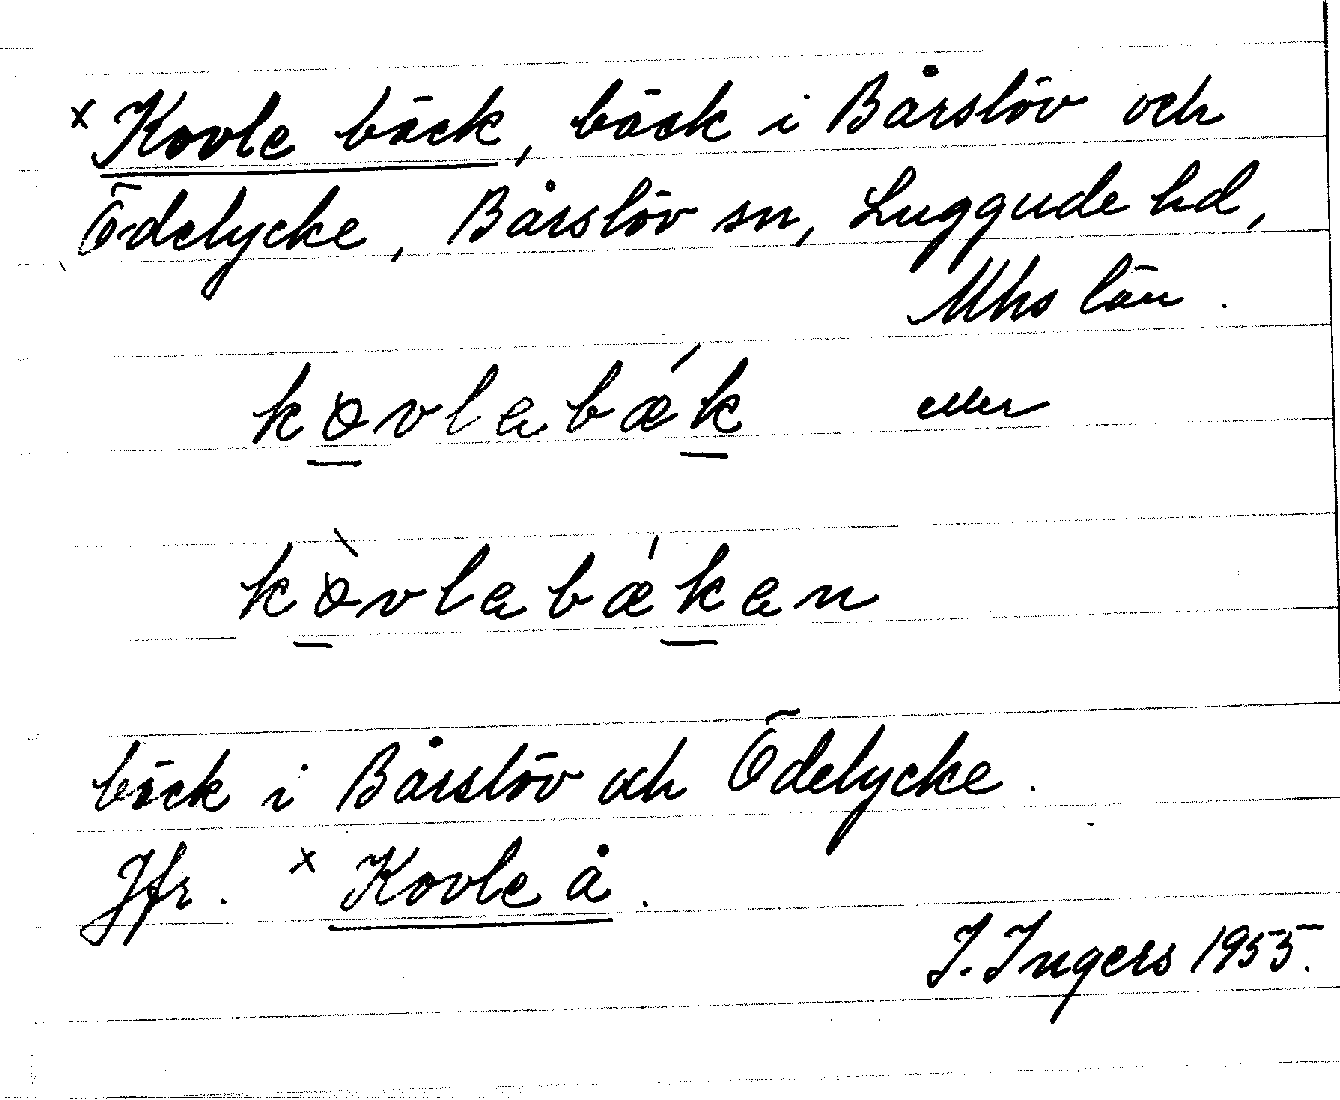 x Kovle bäck, bäck i Bårslöv och
Ödelycke, Bårslöv sn, Luggude hd,
Mhs län.
kovlabǽk eller
kòvlabǽkan
bäck i Bårslöv och Ödelycke.
Jfr. x Kovle å.
I. Ingers 1955.